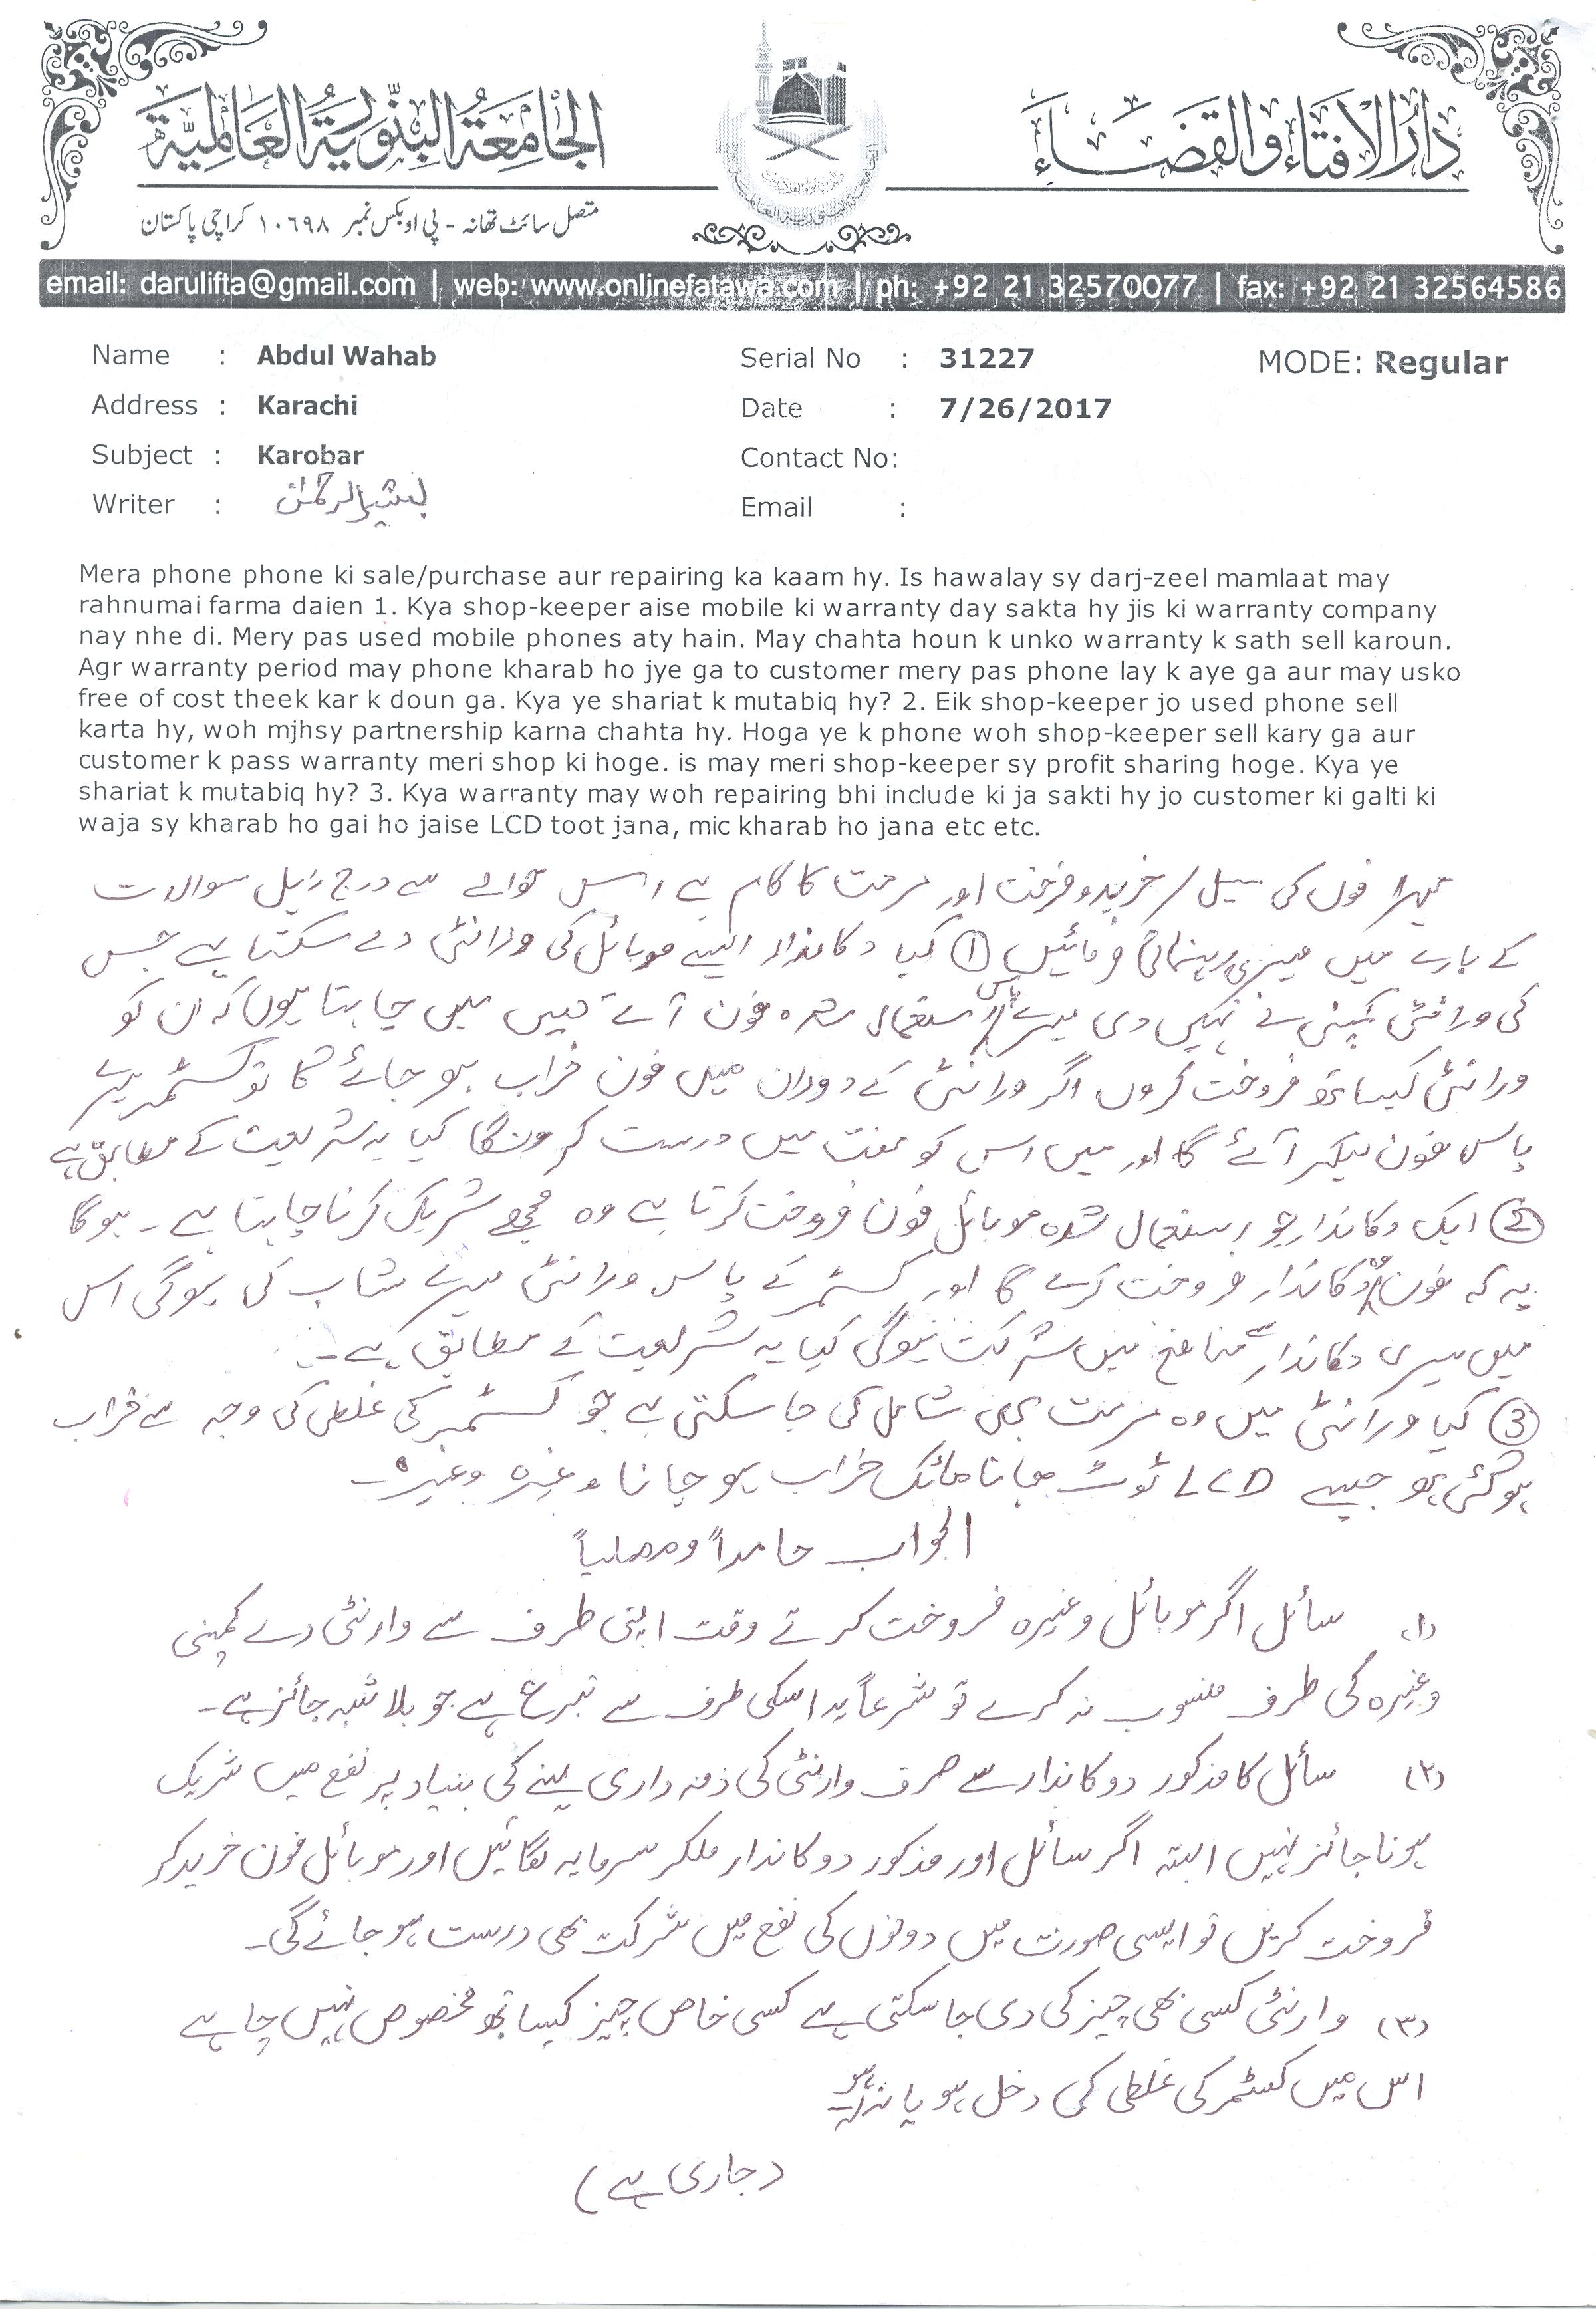 دارُالافتاء والقضاء
الجامعۃ البنّوریۃ العالمیۃ
متصل سائٹ تھانہ - پی او بکس نمبر ۱۰۶۹۸ کراچی پاکستان
email: darulifta@gmail.com | web: www.onlinefatawa.com | ph: +92 21 32570077 | fax: +92 21 32564586
Name : Abdul Wahab Serial No : 31227 MODE: Regular
Address : Karachi Date : 7/26/2017
Subject : Karobar Contact No:
Writer : Email :
Mera phone phone ki sale/purchase aur repairing ka kaam hy. Is hawalay sy darj-zeel mamlaat may
rahnumai farma daien 1. Kya shop-keeper aise mobile ki warranty day sakta hy jis ki warranty company
nay nhe di. Mery pas used mobile phones aty hain. May chahta houn k unko warranty k sath sell karoun.
Agr warranty period may phone kharab ho jye ga to customer mery pas phone lay k aye ga aur may usko
free of cost theek kar k doun ga. Kya ye shariat k mutabiq hy? 2. Eik shop-keeper jo used phone sell
karta hy, woh mjhsy partnership karna chahta hy. Hoga ye k phone woh shop-keeper sell kary ga aur
customer k pass warranty meri shop ki hoge. is may meri shop-keeper sy profit sharing hoge. Kya ye
shariat k mutabiq hy? 3. Kya warranty may woh repairing bhi include ki ja sakti hy jo customer ki galti ki
waja sy kharab ho gai ho jaise LCD toot jana, mic kharab ho jana etc etc.
میرا فون کی سیل / خرید و فرخت اور مرمت کا کام ہے اس حوالے سے درج ذیل سوالات
کے بارے میں میری رہنمائی فرمائیں ① کیا دکاندار ایسے موبائل کی ورانٹی دے سکتا ہے جس
کی ورانٹی کمپنی نے نہیں دی میرے پاس استعمال شدہ فون آتے ہیں میں چاہتا ہوں کہ ان کو
ورانٹی کیساتھ فروخت کروں اگر ورانٹی کے دوران میں فون خراب ہو جائے گا تو کسٹمر میرے
پاس فون لیکر آئے گا اور میں اس کو مفت میں درست کر دونگا کیا یہ شریعت کے مطابق ہے
② ایک دکاندار جو استعمال شدہ موبائل فون فروخت کرتا ہے وہ مجھے شریک کرنا چاہتا ہے ۔ ہوگا
یہ کہ فون وہ دکاندار فروخت کرے گا اور کسٹمر کے پاس ورانٹی میرے شاپ کی ہوگی اس
میں میری دکاندار سے منافع میں شرکت ہوگی کیا یہ شریعت کے مطابق ہے ۔
③ کیا ورانٹی میں وہ مرمت بھی شامل کی جا سکتی ہے جو کسٹمر کی غلطی کی وجہ سے خراب
ہوگئی ہو جیسے LCD ٹوٹ جانا مائک خراب ہو جانا وغیرہ وغیرہ ۔
الجواب حامداً ومصلیاً
(۱) سائل اگر موبائل وغیرہ فروخت کرتے وقت اپنی طرف سے وارنٹی دے کمپنی
وغیرہ کی طرف منسوب نہ کرے تو شرعاً یہ اسکی طرف سے تبرع ہے جو بلا شبہ جائز ہے ۔
(۲) سائل کا مذکور دوکاندار سے صرف وارنٹی کی ذمہ داری لینے کی بنیاد پر نفع میں شریک
ہونا جائز نہیں البتہ اگر سائل اور مذکور دوکاندار ملکر سرمایہ لگائیں اور موبائل فون خرید کر
فروخت کریں تو ایسی صورت میں دونوں کی نفع میں شرکت بھی درست ہو جائے گی ۔
(۳) وارنٹی کسی بھی چیز کی دی جا سکتی ہے کسی خاص چیز کیساتھ مخصوص نہیں چاہے
اس میں کسٹمر کی غلطی کی دخل ہو یا نہ ہو
(جاری ہے)